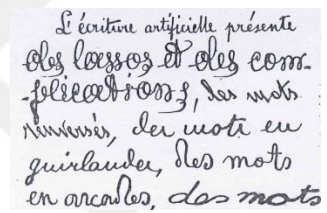 L'écriture artificielle présente
des lassos et des com-
-plications, des mots
renversés, des mots en
guirlandes, des mots
en arcades, des mots